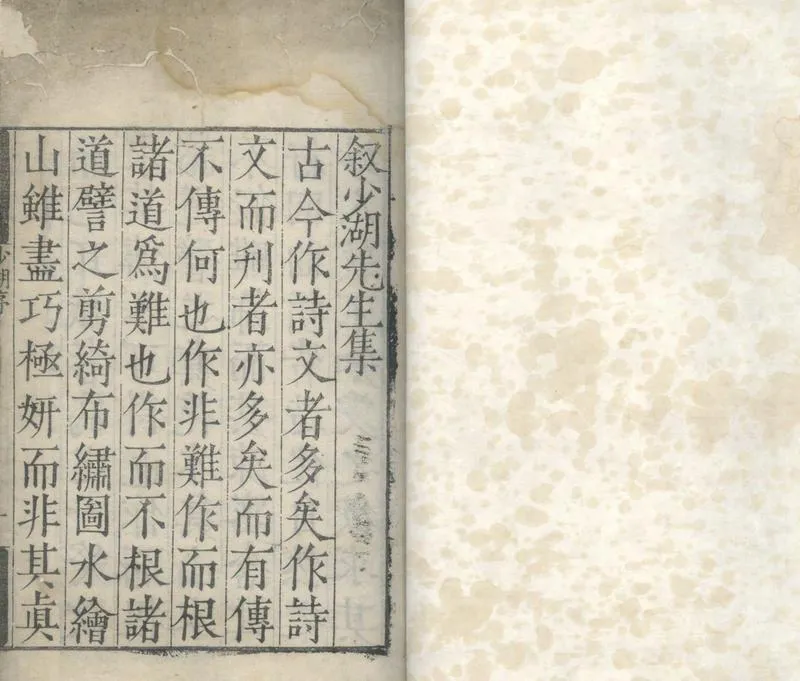 叙少湖先生集
古今作詩文者多矣作詩
文而刋者亦多矣而有傳
不傳何也作非難作而根
諸道爲難也作而不根諸
道譬之剪綺布繡圖水繪
山雖盡巧極妍而非其眞
少湖序